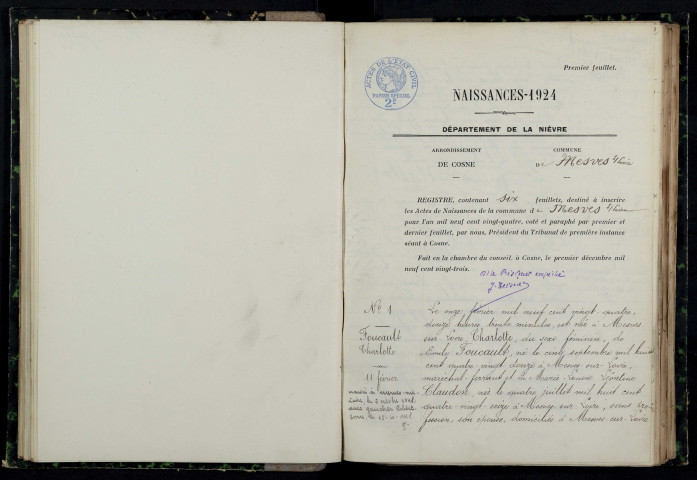 Premier feuillet.
ACTES DE L'ETAT CIVIL
PAPIER SPECIAL
2e
NAISSANCES-1924
DÉPARTEMENT DE LA NIÈVRE
ARRONDISSEMENT
DE COSNE
COMMUNE
De Mesves s/Loire
REGISTRE, contenant six feuillets, destiné à inscrire
les Actes de Naissances de la commune de Mesves s/Loire
pour l'an mil neuf cent vingt-quatre, coté et paraphé par premier et
dernier feuillet, par nous, Président du Tribunal de première instance
séant à Cosne.
Fait en la chambre du conseil, à Cosne, le premier décembre mil
neuf cent vingt-trois.
empêché
No 1
Foucault
Charlotte
11 février
Le onze février mil neuf cent vingt quatre,
douze heures trente minutes, est née à Mesves
sur Loire Charlotte, du sexe féminin, de
Foucault, né le cinq septembre mil huit
cent quatre vingt douze à Mesves-sur-Loire,
maréchal ferrant et de Marie
Claudon, née le quatre juillet mil huit cent
quatre-vingt seize à Mesves-sur-Loire, sans pro-
fession, son épouse, domiciliés à Mesves-sur-Loire